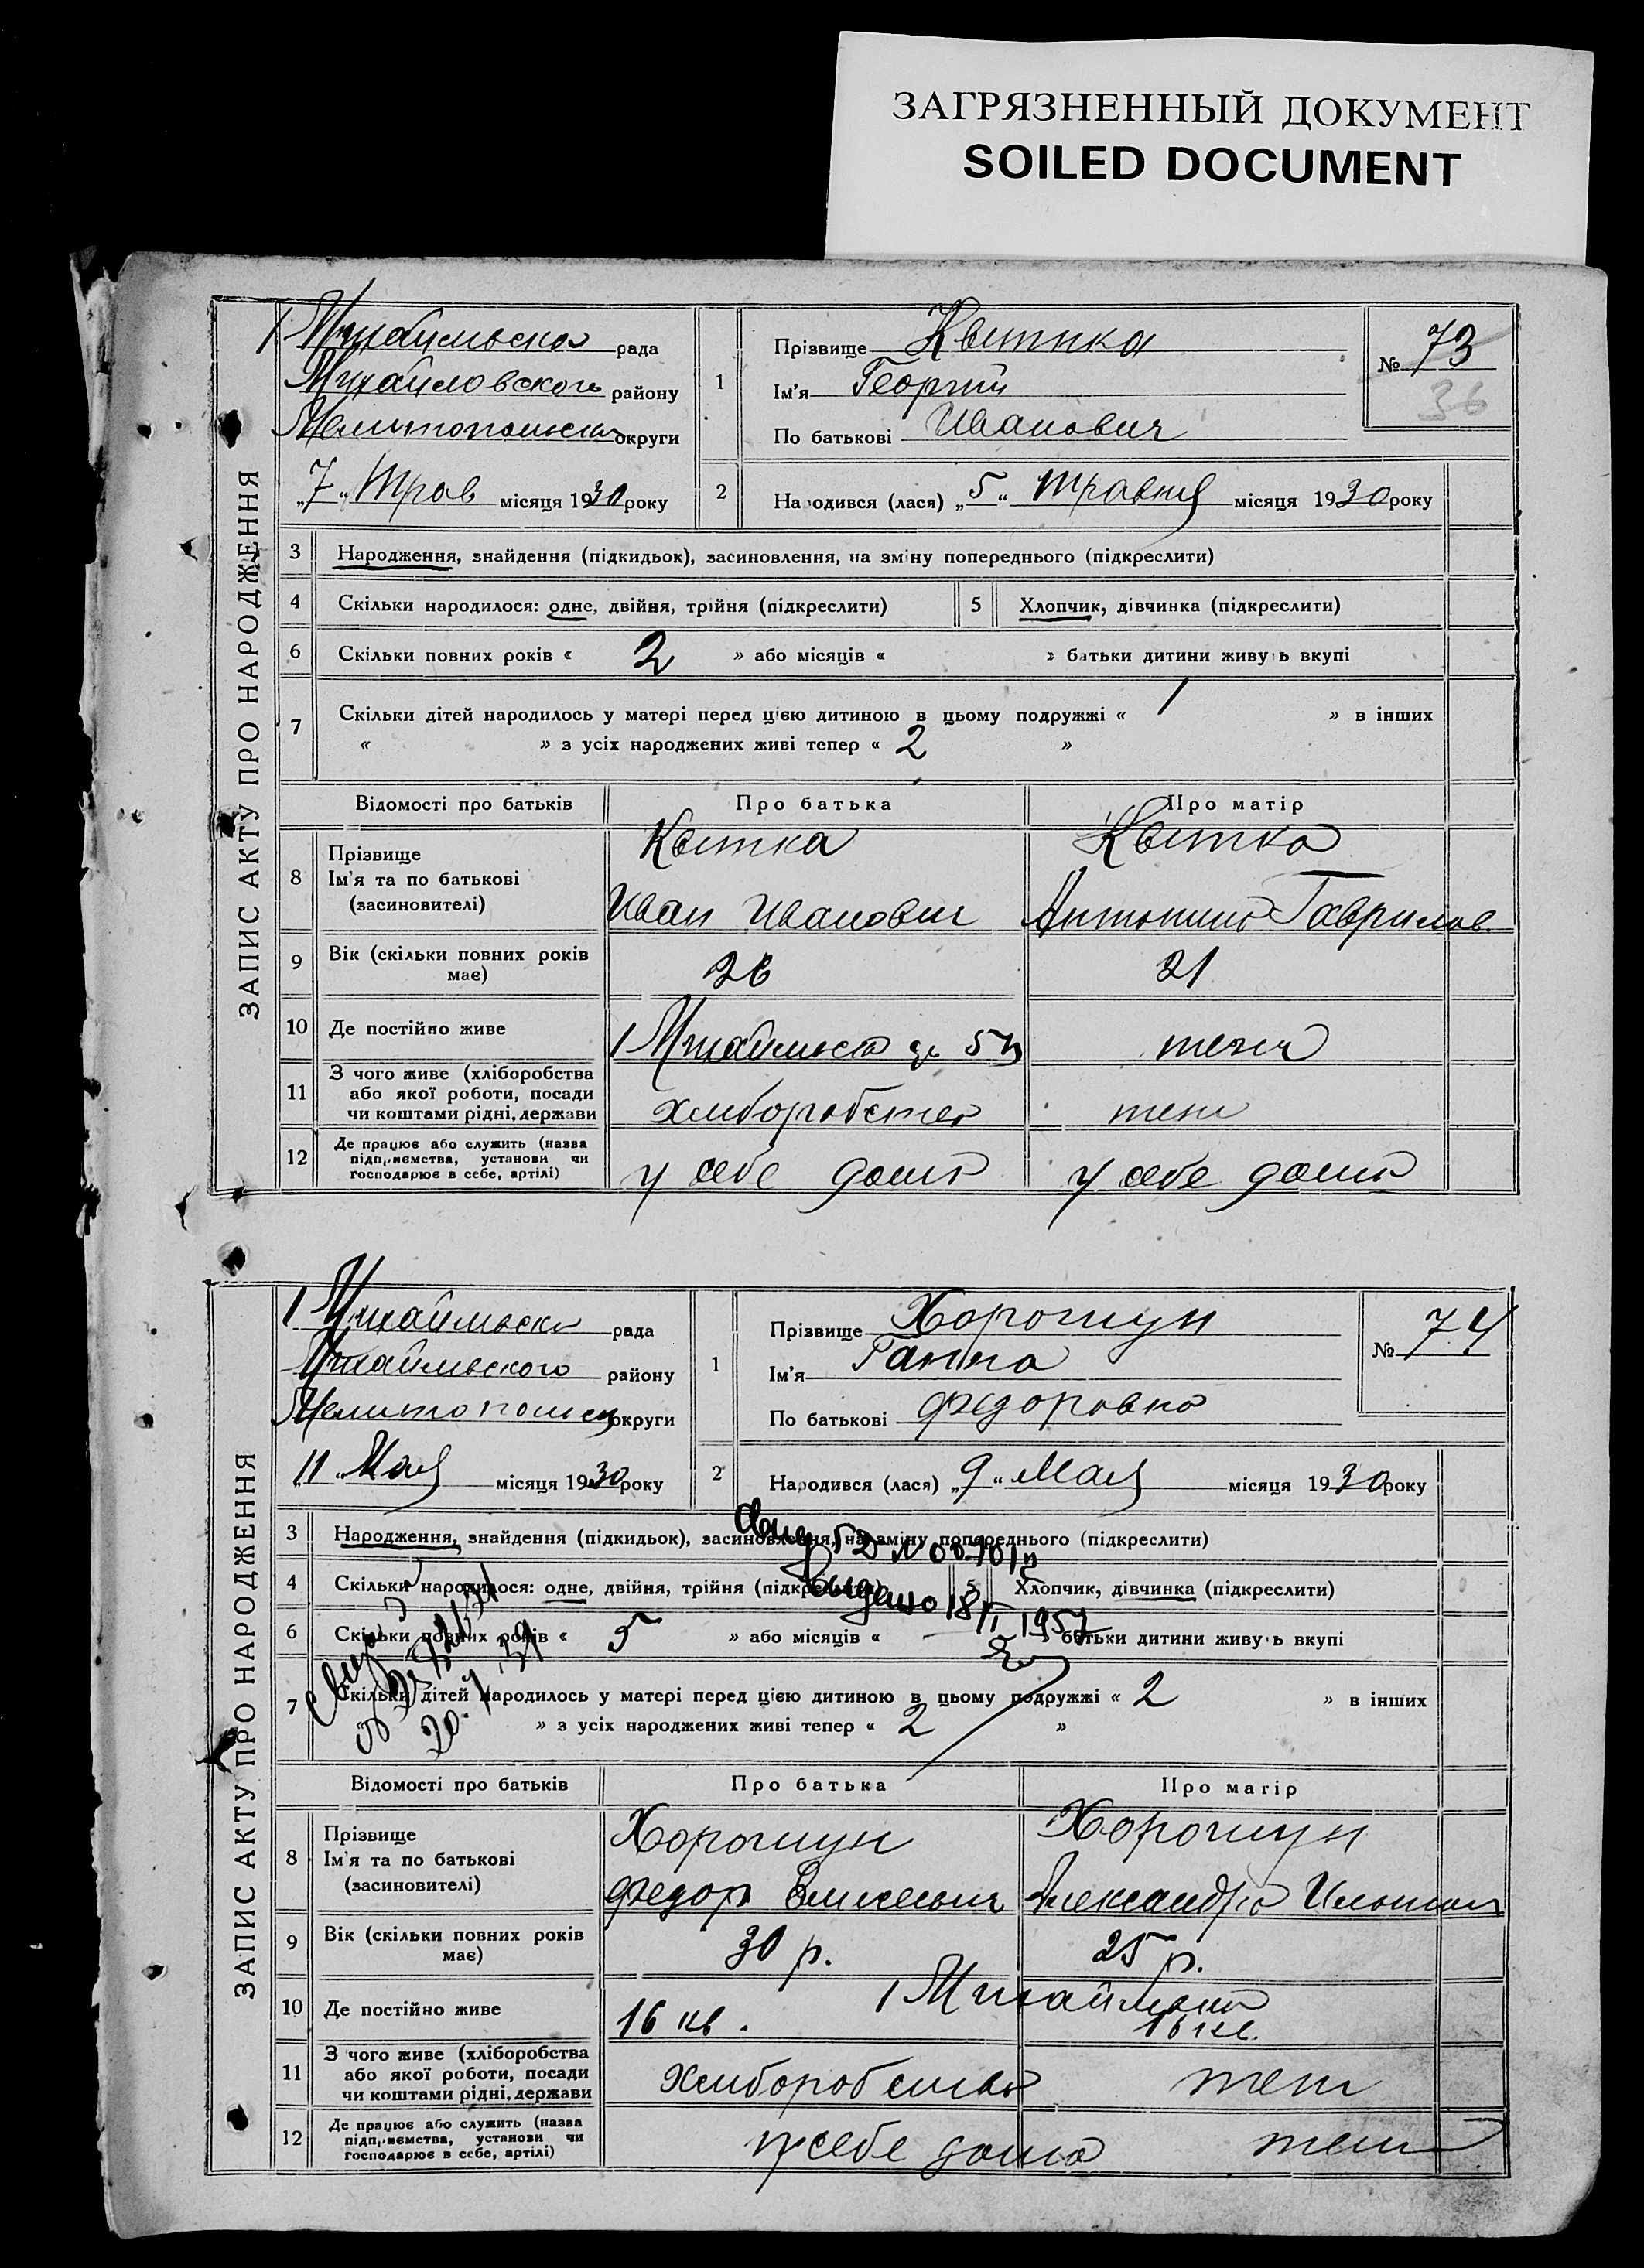 ЗАГРЯЗНЕННЫЙ ДОКУМЕНТ
SOILED DOCUMENT
ЗАПИС АКТУ ПРО НАРОДЖЕННЯ
рада
Михайловского району
округи
„7“ Трав місяця 1930 року
1
Прізвище Квитка
Ім'я Георгий
По батькові Иванович
№ 73
36
2
Народився (лася) „5“ травня місяця 1930 року
3 Народження, знайдення (підкидьок), засиновлення, на зміну попереднього (підкреслити)
4 Скільки народилося: одне, двійня, трійня (підкреслити) 5 Хлопчик, дівчинка (підкреслити)
6 Скільки повних років « 2 » або місяців « » батьки дитини живуть вкупі
7 Скільки дітей народилось у матері перед цією дитиною в цьому подружжі « 1 » в інших
« » з усіх народжених живі тепер « 2 »
Відомості про батьків Про батька Про матір
8 Прізвище Ім'я та по батькові (засновителі)
Квитка Квитка
Иван Иванович Антонина Гаврилов.
9 Вік (скільки повних років має) 26 21
10 Де постійно живе
11 З чого живе (хліборобства або якої роботи, посади чи коштами рідні, держави
хлиборобство
12 Де працює або служить (назва підприємства, установи чи господарює в себе, артілі)
у себе дома у себе дома
ЗАПИС АКТУ ПРО НАРОДЖЕННЯ
рада
району
округи
„11“ Мая місяця 1930 року
1
Прізвище Хорошун
Ім'я Ганна
По батькові Федоровна
№ 74
2
Народився (лася) „9“ Мая місяця 1930 року
3 Народження, знайдення (підкидьок), засиновлення, на зміну попереднього (підкреслити)
4 Скільки народилося: одне, двійня, трійня (підкреслити) 5 Хлопчик, дівчинка (підкреслити)
Выдано 18 1957
6 Скільки повних років « 5 » або місяців « » батьки дитини живуть вкупі
7 Скільки дітей народилось у матері перед цією дитиною в цьому подружжі « 2 » в інших
» з усіх народжених живі тепер « 2 »
Відомості про батьків Про батька Про матір
8 Прізвище Ім'я та по батькові (засиновителі)
Хорошун Хорошун
Федор Александра
9 Вік (скільки повних років має) 30 р. 25 р.
10 Де постійно живе 16 кв. 16 кв.
11 З чого живе (хліборобства або якої роботи, посади чи коштами рідні, держави
хлиборобства
12 Де працює або служить (назва підприємства, установи чи господарює в себе, артілі)
у себе дома